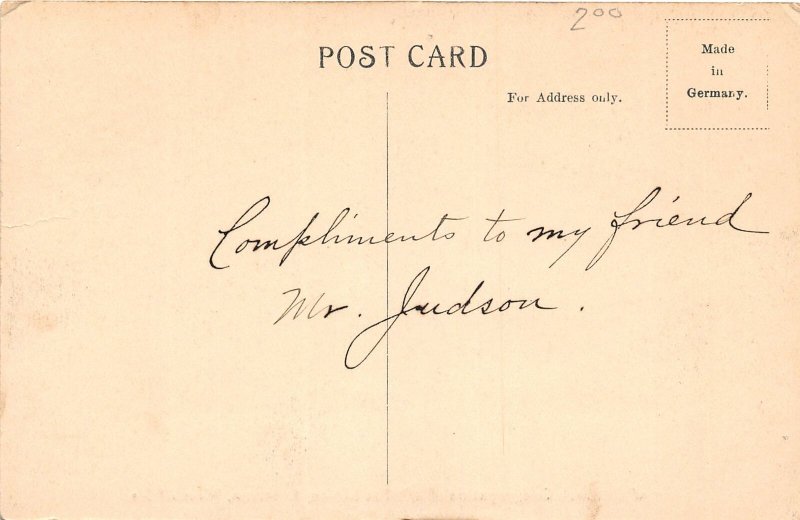 2⁰⁰
POST CARD
Made
in
Germany.
For Address only.
Compliments to my friend
Mr. Judson.